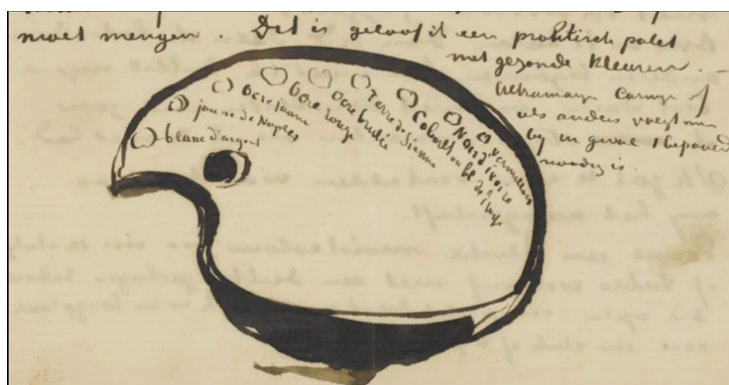 moet mengen. Dit is geloof ik een praktisch palet
met gezonde kleuren. –
Ultramarijn Carmijn of
als anders voegt men
by in geval 1 bepaald
noodig is.
blanc d'argent
jaune de Naples
Ocre jaune
Ocre rouge
Ocre brulée
Terre de Sienne
Cobalt ou bl de
Noir d'ivoire
Vermillon